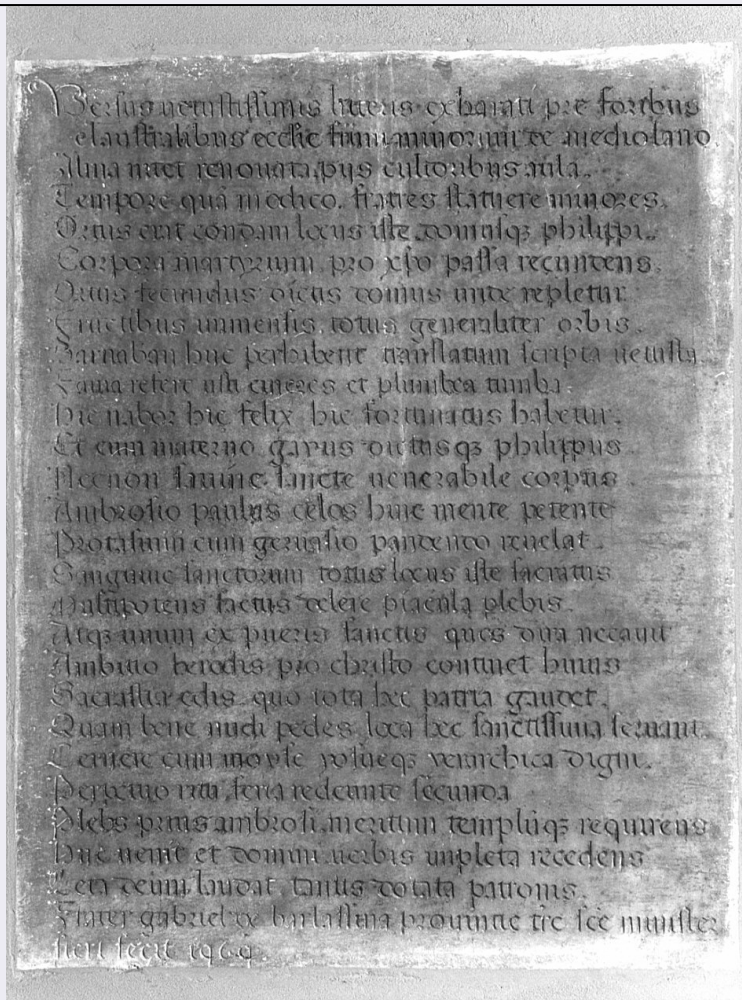 Versus uetustissimis litteris exharati pre foribus
claustralibus ecclie frm minorum de mediolano
Alma nitet renouata pijs cultoribus aula
Tempore qua modico. fratres statuere minores.
Ortus erat condam locus iste domusqz philippi.
Corpora martyrum pro xpo passa recundens.
Ortus fecundus dictus domus unde repletur
Fructibus immensis. totus generaliter orbis.
Barnaban huc perhibent translatum scripta uetusta
Fama refert usti cineres et plumbea tumba
Hic nabor hic felix hic fortunatus habetur.
Et cum materno gayus dictusqz philippus
Necnon sauine sancte uenerabile corpus
Ambrosio paulus celos huic mente petente
Protasium cum geruasio pandendo reuelat.
Sanguine sanctorum totus locus iste sacratus
factus delere piacula plebis.
Atqz unum ex pueris sanctis quos dira necauit
Ambitio herodis pro christo continet huius
Sacrastia edis quo tota hec patria gaudet.
Quam bene nudi pedes loca hec sanctissima seruant.
Cernere cum moyse digni.
Perpetuo ritu feria redeunte secunda
Plebs prius ambrosi meritum templuqz requirens
Huc uenit et domini uerbis impleta recedens
Leta deum laudat tantis dotata patronis.
Frater gabriel de barlassina prouincie sce minister
fieri fecit 1969.